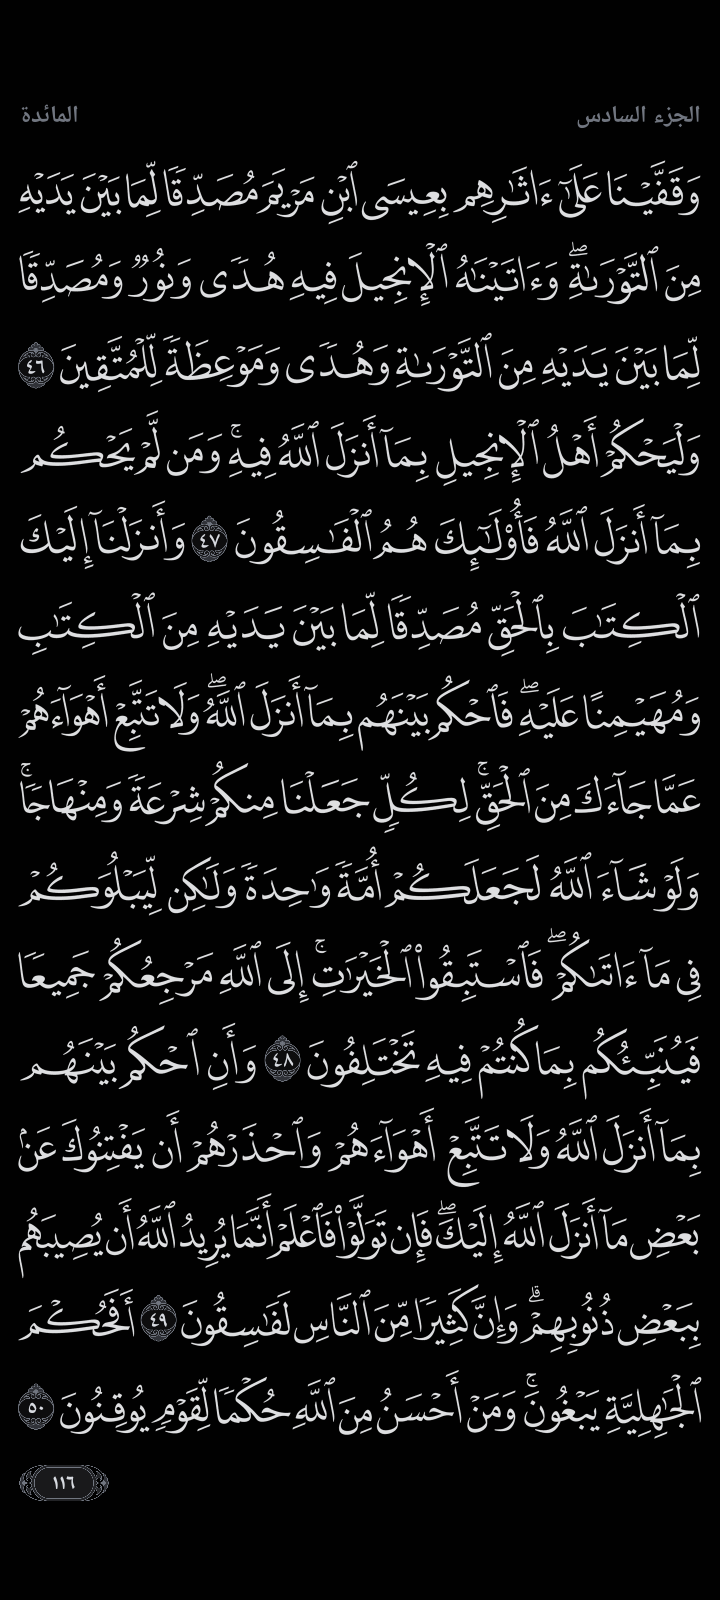 الجزء السادس
المائدة
وَقَفَّيۡنَا عَلَىٰٓ ءَاثَٰرِهِم بِعِيسَى ٱبۡنِ مَرۡيَمَ مُصَدِّقٗا لِّمَا بَيۡنَ يَدَيۡهِ
مِنَ ٱلتَّوۡرَىٰةِۖ وَءَاتَيۡنَٰهُ ٱلۡإِنجِيلَ فِيهِ هُدٗى وَنُورٞ وَمُصَدِّقٗا
لِّمَا بَيۡنَ يَدَيۡهِ مِنَ ٱلتَّوۡرَىٰةِ وَهُدٗى وَمَوۡعِظَةٗ لِّلۡمُتَّقِينَ ٤٦
وَلۡيَحۡكُمۡ أَهۡلُ ٱلۡإِنجِيلِ بِمَآ أَنزَلَ ٱللَّهُ فِيهِۚ وَمَن لَّمۡ يَحۡكُم
بِمَآ أَنزَلَ ٱللَّهُ فَأُوْلَٰٓئِكَ هُمُ ٱلۡفَٰسِقُونَ ٤٧ وَأَنزَلۡنَآ إِلَيۡكَ
ٱلۡكِتَٰبَ بِٱلۡحَقِّ مُصَدِّقٗا لِّمَا بَيۡنَ يَدَيۡهِ مِنَ ٱلۡكِتَٰبِ
وَمُهَيۡمِنًا عَلَيۡهِۖ فَٱحۡكُم بَيۡنَهُم بِمَآ أَنزَلَ ٱللَّهُۖ وَلَا تَتَّبِعۡ أَهۡوَآءَهُمۡ
عَمَّا جَآءَكَ مِنَ ٱلۡحَقِّۚ لِكُلّٖ جَعَلۡنَا مِنكُمۡ شِرۡعَةٗ وَمِنۡهَاجٗاۚ
وَلَوۡ شَآءَ ٱللَّهُ لَجَعَلَكُمۡ أُمَّةٗ وَٰحِدَةٗ وَلَٰكِن لِّيَبۡلُوَكُمۡ
فِي مَآ ءَاتَىٰكُمۡۖ فَٱسۡتَبِقُواْ ٱلۡخَيۡرَٰتِۚ إِلَى ٱللَّهِ مَرۡجِعُكُمۡ جَمِيعٗا
فَيُنَبِّئُكُم بِمَا كُنتُمۡ فِيهِ تَخۡتَلِفُونَ ٤٨ وَأَنِ ٱحۡكُم بَيۡنَهُم
بِمَآ أَنزَلَ ٱللَّهُ وَلَا تَتَّبِعۡ أَهۡوَآءَهُمۡ وَٱحۡذَرۡهُمۡ أَن يَفۡتِنُوكَ عَنۢ
بَعۡضِ مَآ أَنزَلَ ٱللَّهُ إِلَيۡكَۖ فَإِن تَوَلَّوۡاْ فَٱعۡلَمۡ أَنَّمَا يُرِيدُ ٱللَّهُ أَن يُصِيبَهُم
بِبَعۡضِ ذُنُوبِهِمۡۗ وَإِنَّ كَثِيرٗا مِّنَ ٱلنَّاسِ لَفَٰسِقُونَ ٤٩ أَفَحُكۡمَ
ٱلۡجَٰهِلِيَّةِ يَبۡغُونَۚ وَمَنۡ أَحۡسَنُ مِنَ ٱللَّهِ حُكۡمٗا لِّقَوۡمٖ يُوقِنُونَ ٥٠
١١٦